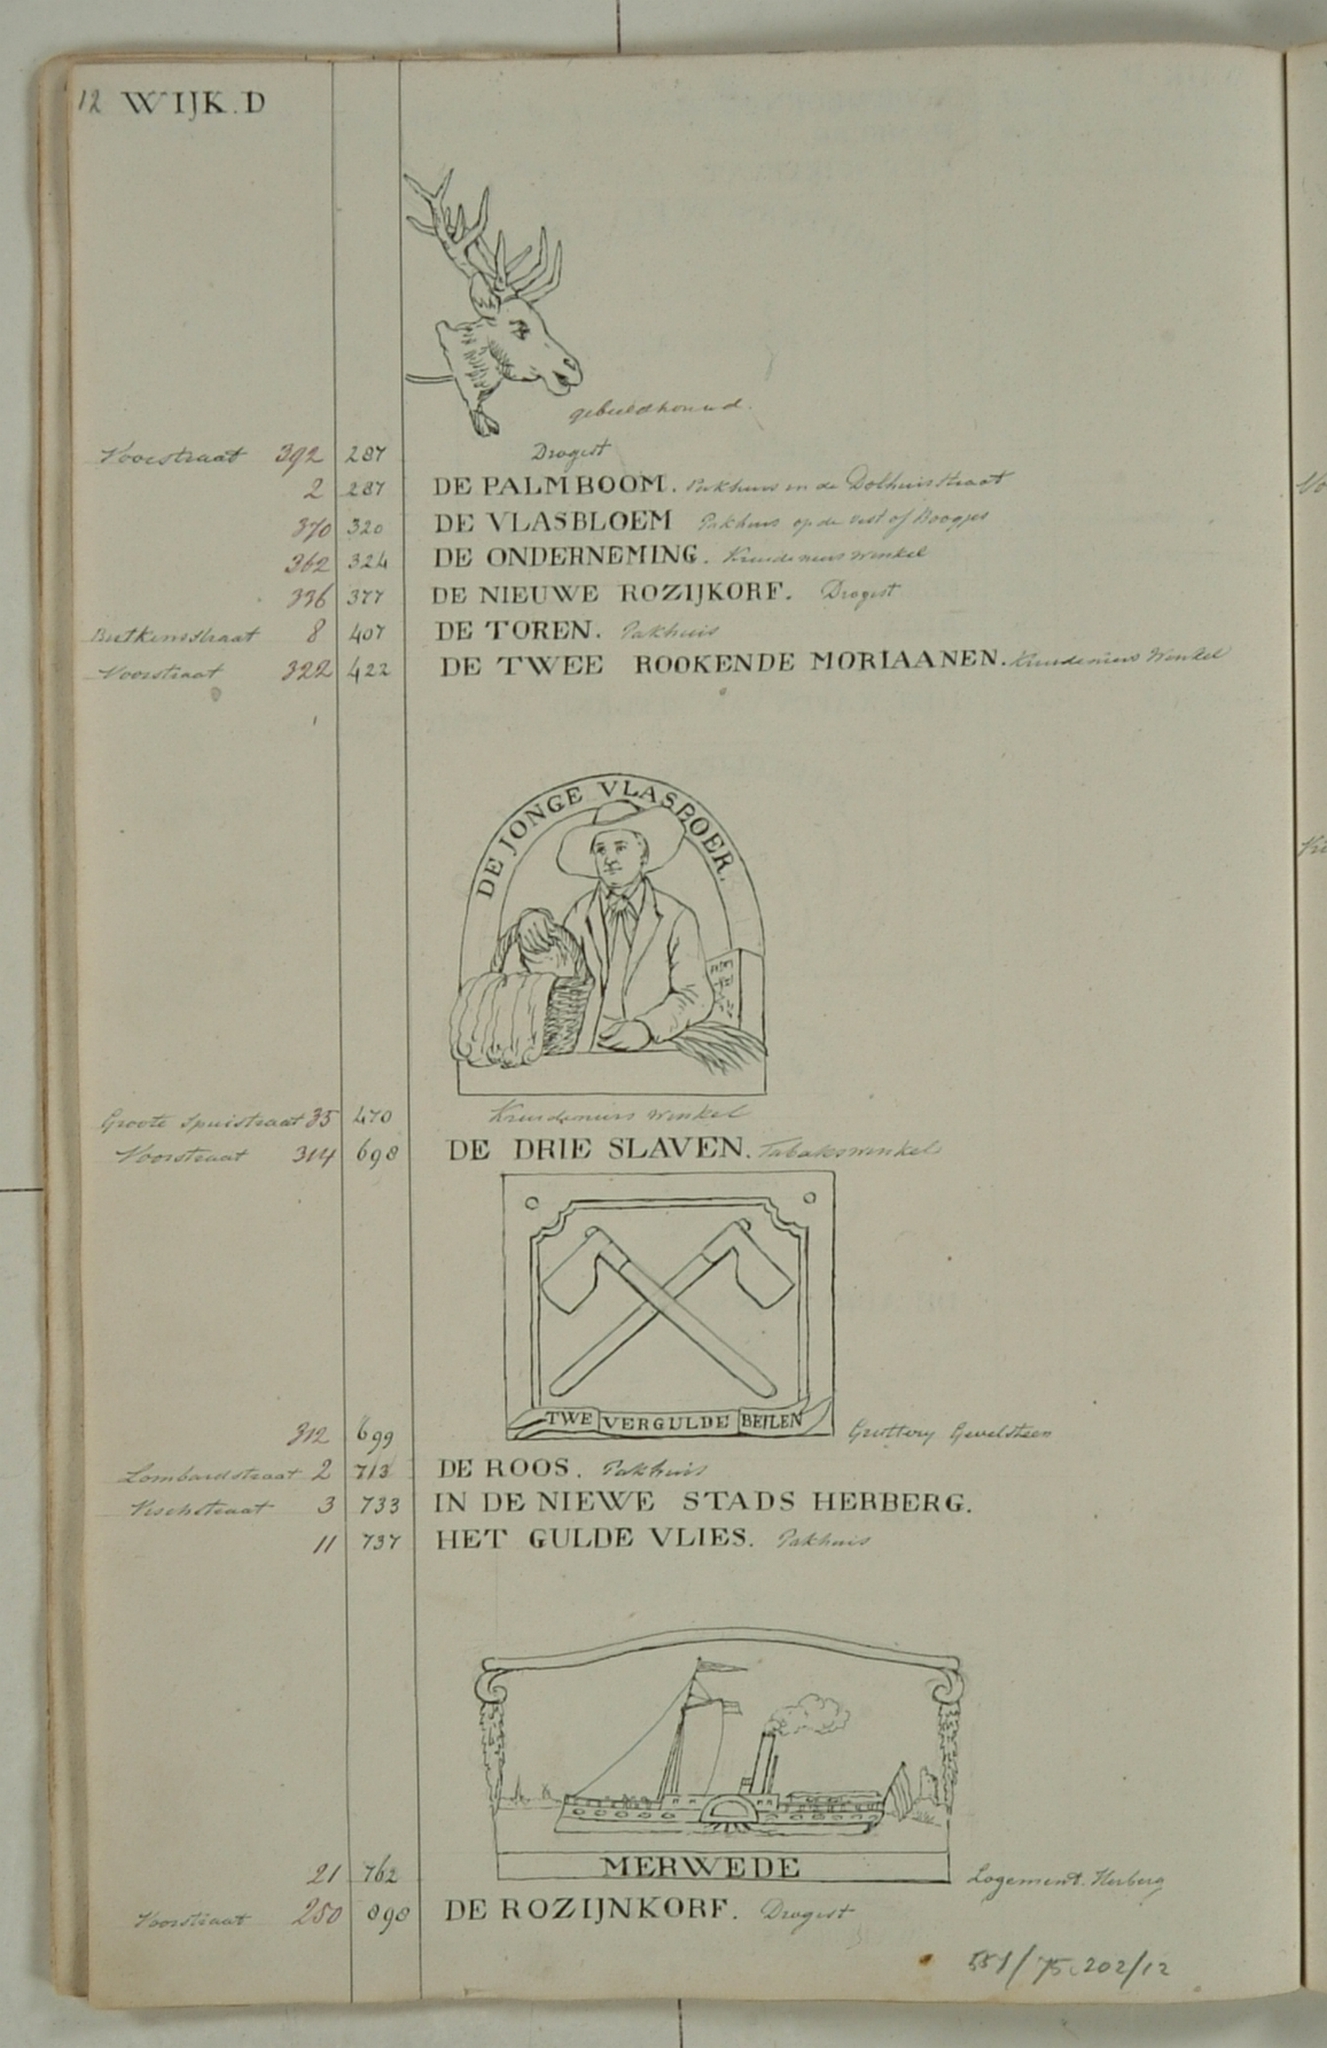 12 WIJK. D
gebeeldhouwd.
Voorstraat 392 287 Drogist
2 287 DE PALMBOOM. Pakhuis in de Dolhuisstraat
370 320 DE VLASBLOEM Pakhuis op de vest of Boogjes
362 324 DE ONDERNEMING. Kruideniers Winkel
336 377 DE NIEUWE ROZIJKORF. Drogist
8 407 DE TOREN. Pakhuis
Voorstraat 322 422 DE TWEE ROOKENDE MORIAANEN. Kruideniers Winkel
DE JONGE VLASBOER.
Groote Spuistraat 35 470 Kruideniers Winkel
Voorstraat 314 698 DE DRIE SLAVEN. Tabakswinkel
TWE VERGULDE BEILEN
312 699 Grutterij Gevelsteen
Lombardstraat 2 713 DE ROOS. Pakhuis
Vischstraat 3 733 IN DE NIEWE STADS HERBERG.
11 737 HET GULDE VLIES. Pakhuis
MERWEDE
21 762 Logement. Herberg
Voorstraat 250 898 DE ROZIJNKORF. Drogist
551/75.202/12